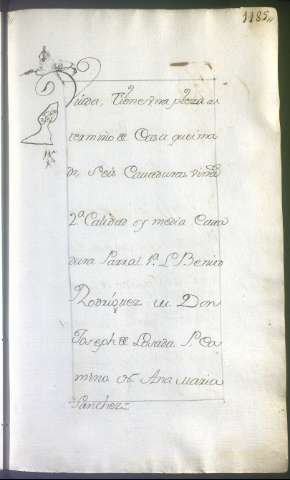 1185
viuda, tiene una pieza al
termino de Casa quesima
de Seis Cavaduras viña
2ª Calidad oy media Cava
dura Parral P. L. Benito
Rodriguez M. Don
Joseph de Losada P. Ca
mino N. Ana Maria
Sanchez